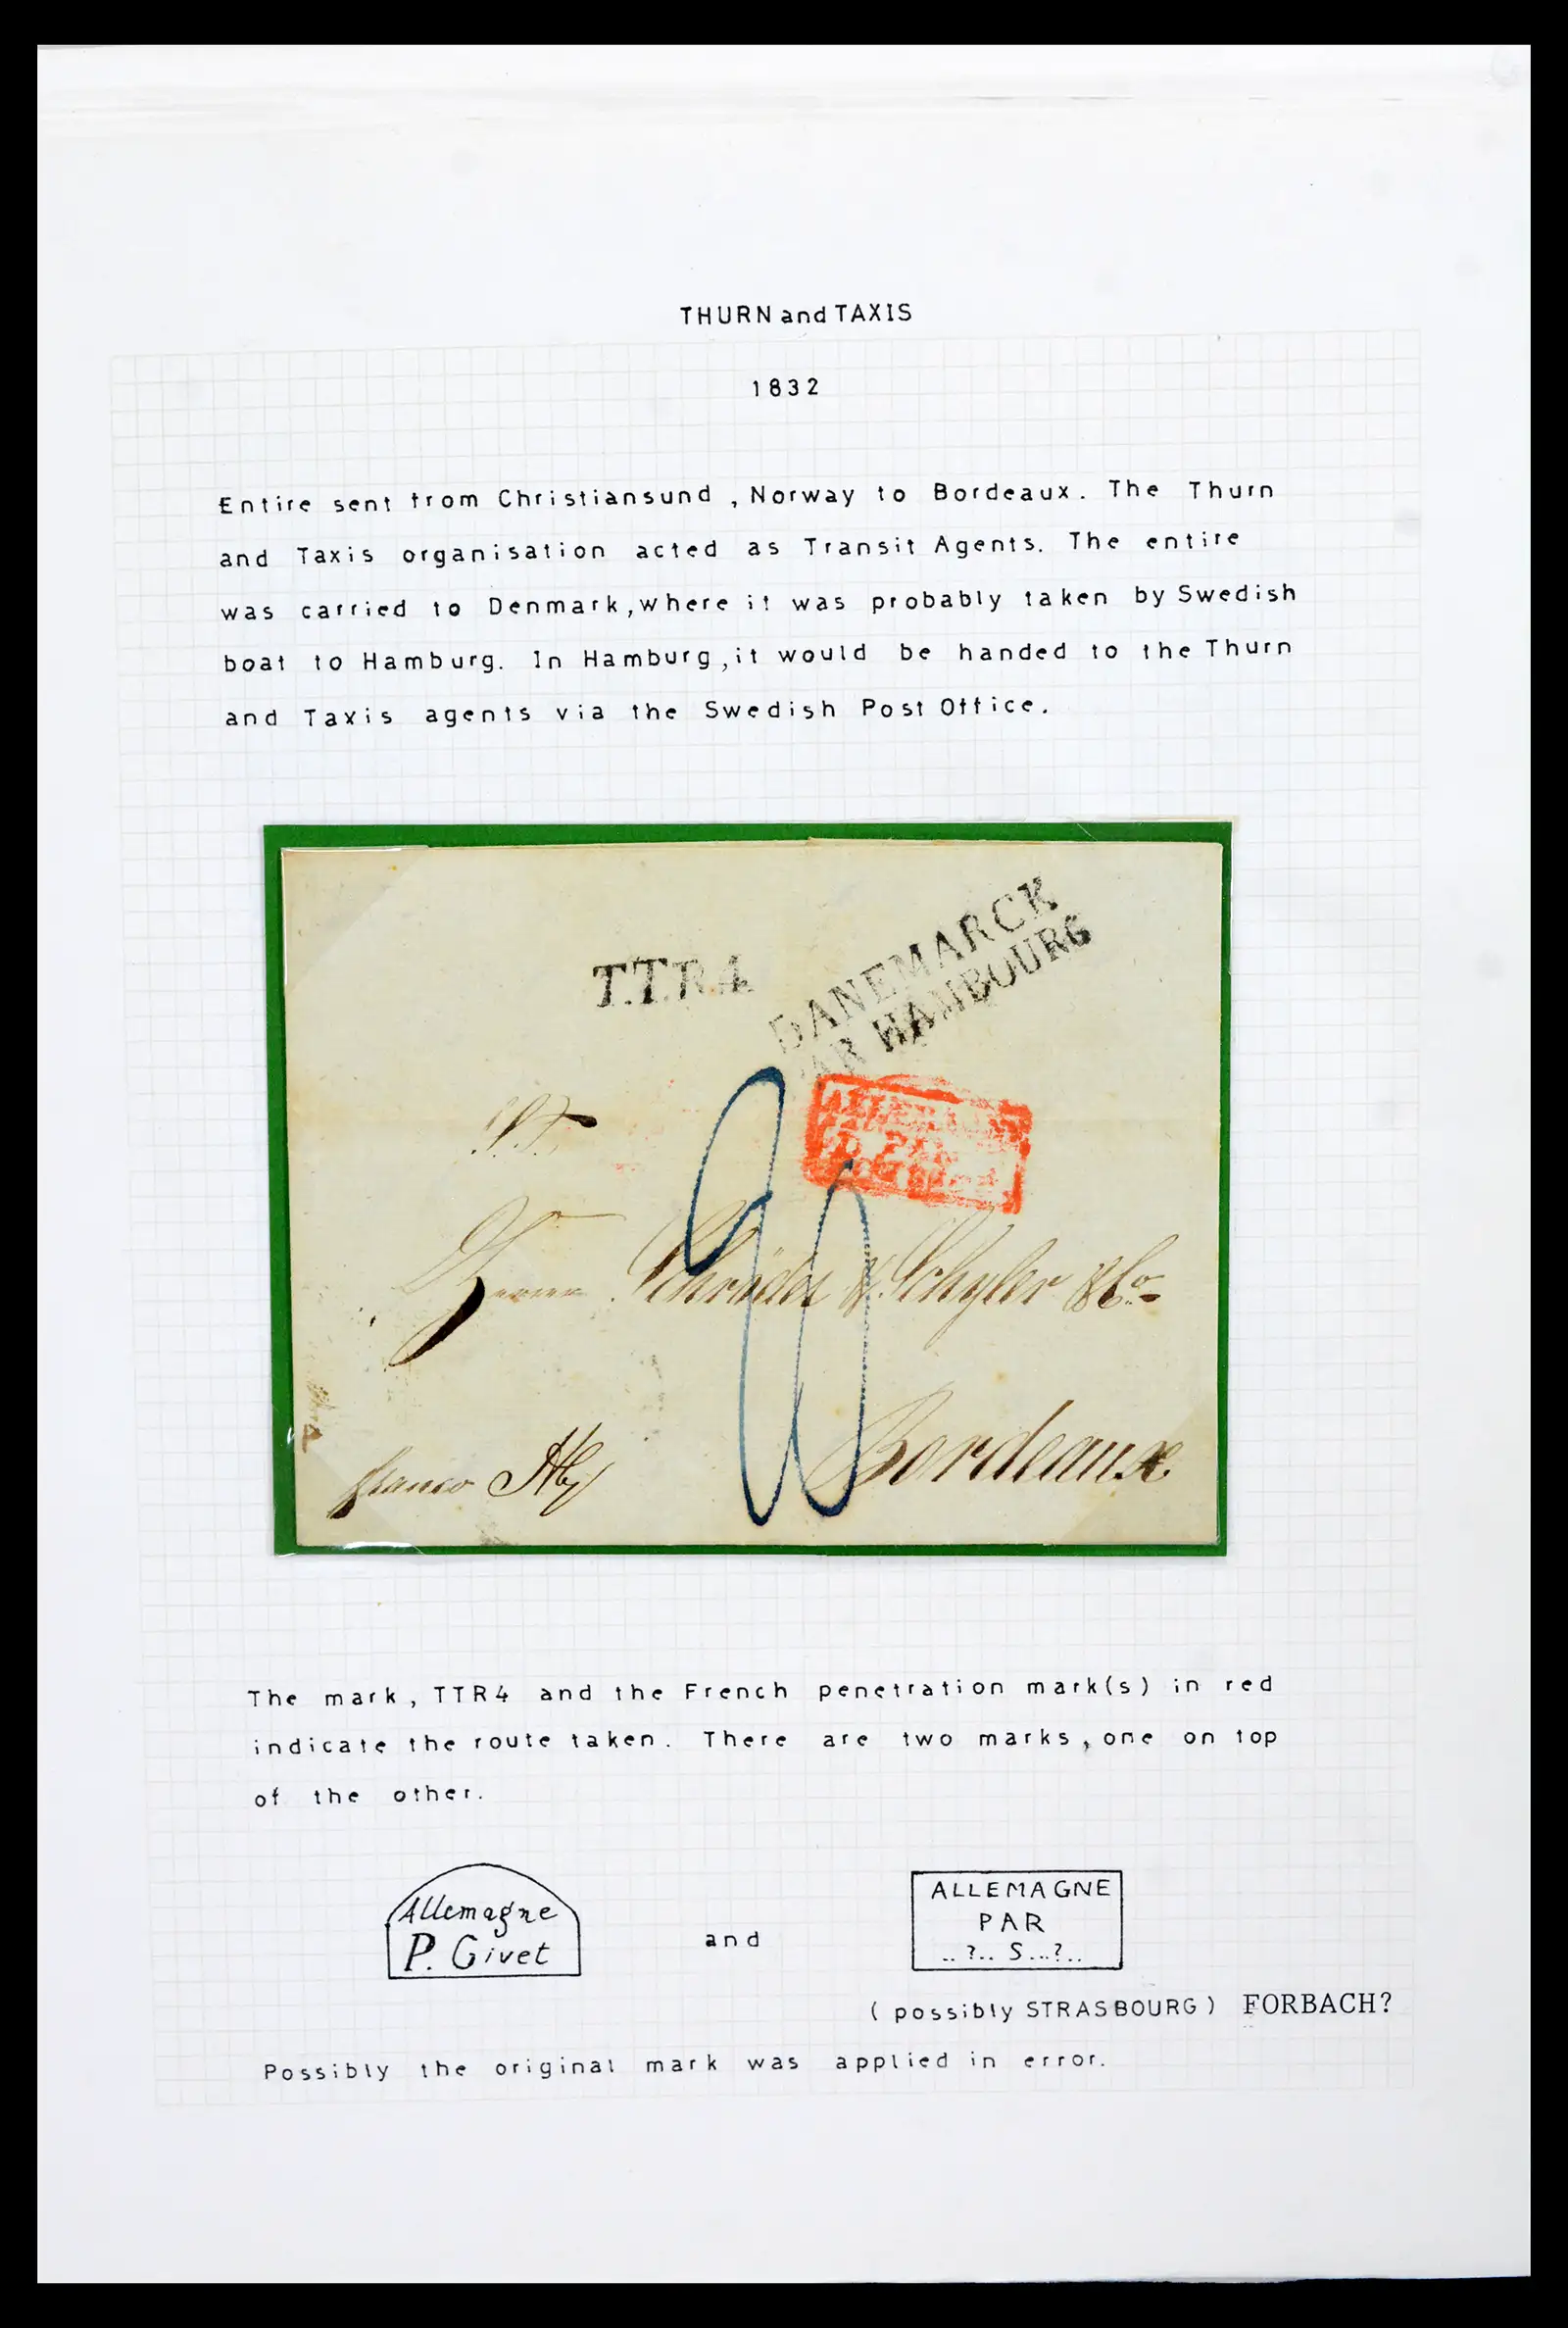 THURN and TAXIS
1832
Entire sent from Christiansund , Norway to Bordeaux. The Thurn
and Taxis organisation acted as Transit Agents. The entire
was carried to Denmark, where it was probably taken by Swedish
boat to Hamburg. In Hamburg, it would be handed to the Thurn
and Taxis agents via the Swedish Post Office.
T.T.R.4
DANEMARCK
PAR HAMBOURG
Schröder & Schyler & Co
franco Hbg
Bordeaux
The mark, TTR4 and the French penetration mark(s) in red
indicate the route taken. There are two marks, one on top
of the other.
Allemagne
P. Givet
and
ALLEMAGNE
PAR
..?.. S...?..
( possibly STRASBOURG ) FORBACH?
Possibly the original mark was applied in error.